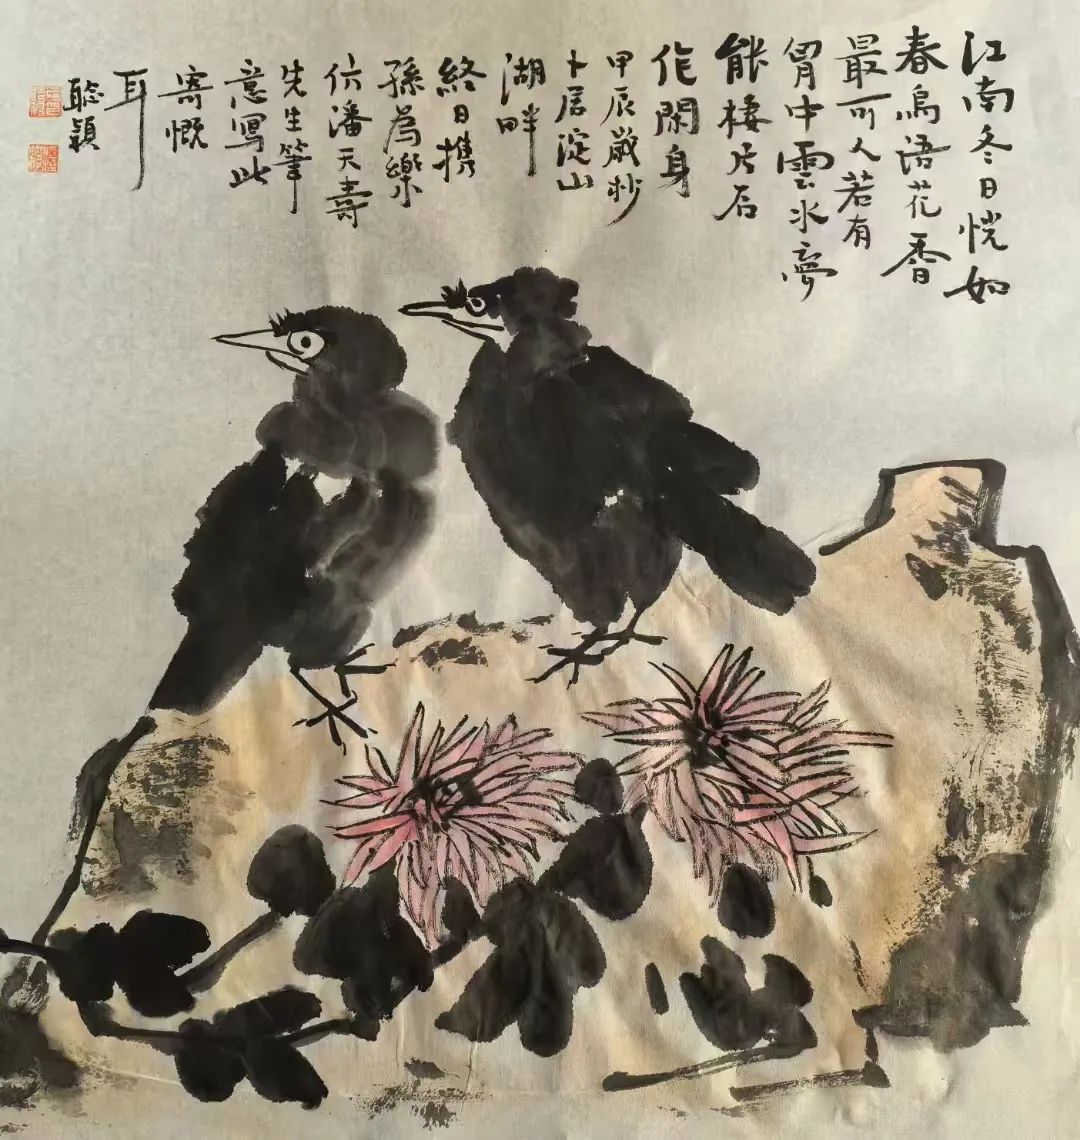 江南冬日恍如
春鳥语花香
最可人若有
胷中雲水夢
能棲片石
作閑身
甲辰歲杪
卜居淀山
湖畔
終日携
孫為樂
仿潘天壽
先生筆
意寫此
寄慨
耳
聽穎